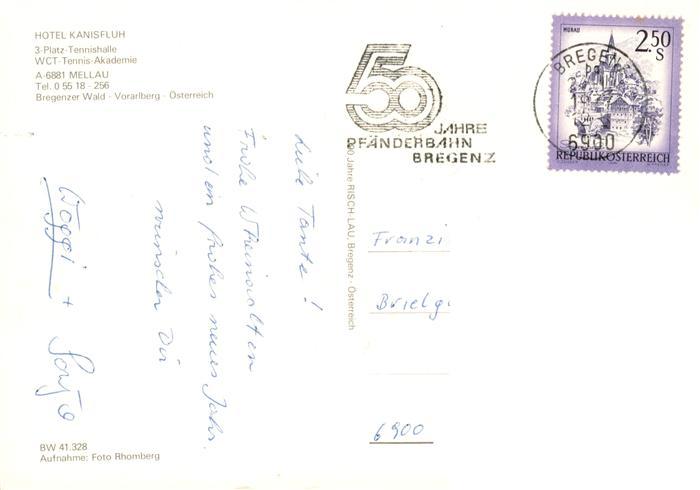 HOTEL KANISFLUH
3-Platz-Tennishalle
WCT-Tennis-Akademie
A-6881 MELLAU
Tel. 0 55 18 - 256
Bregenzer Wald · Vorarlberg · Österreich
Liebe Tante!
Frohe Weihnachten
und ein frohes neues Jahr.
wünschen Dir
Woggi + Sonja
BW 41.328
Aufnahme: Foto Rhomberg
Jahre RISCH-LAU, Bregenz - Österreich
50 JAHRE
PFÄNDERBAHN
BREGENZ
MURAU
2.50
S
REPUBLIK ÖSTERREICH
BREGENZ
6900
Franzi
Brielg
6900